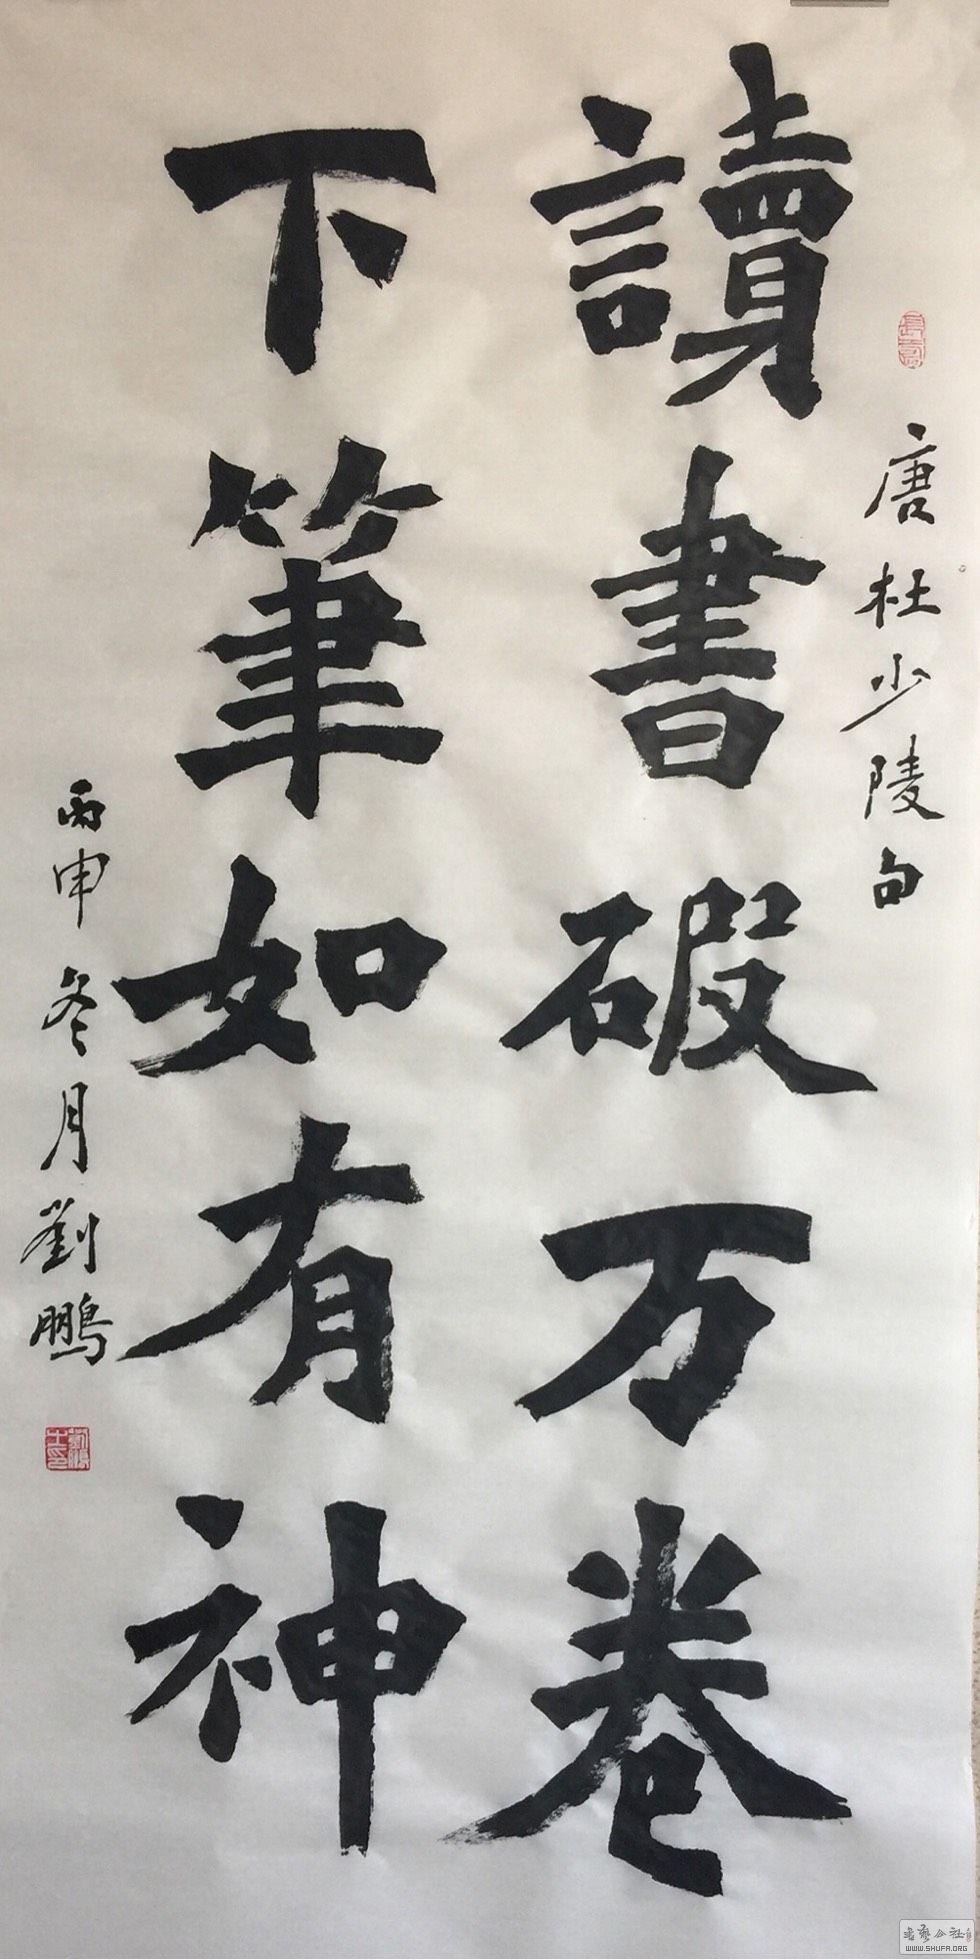 唐杜少陵句
讀書破万卷
下筆如有神
丙申冬月劉鵬
書藝公社
WWW.SHUFA.ORG